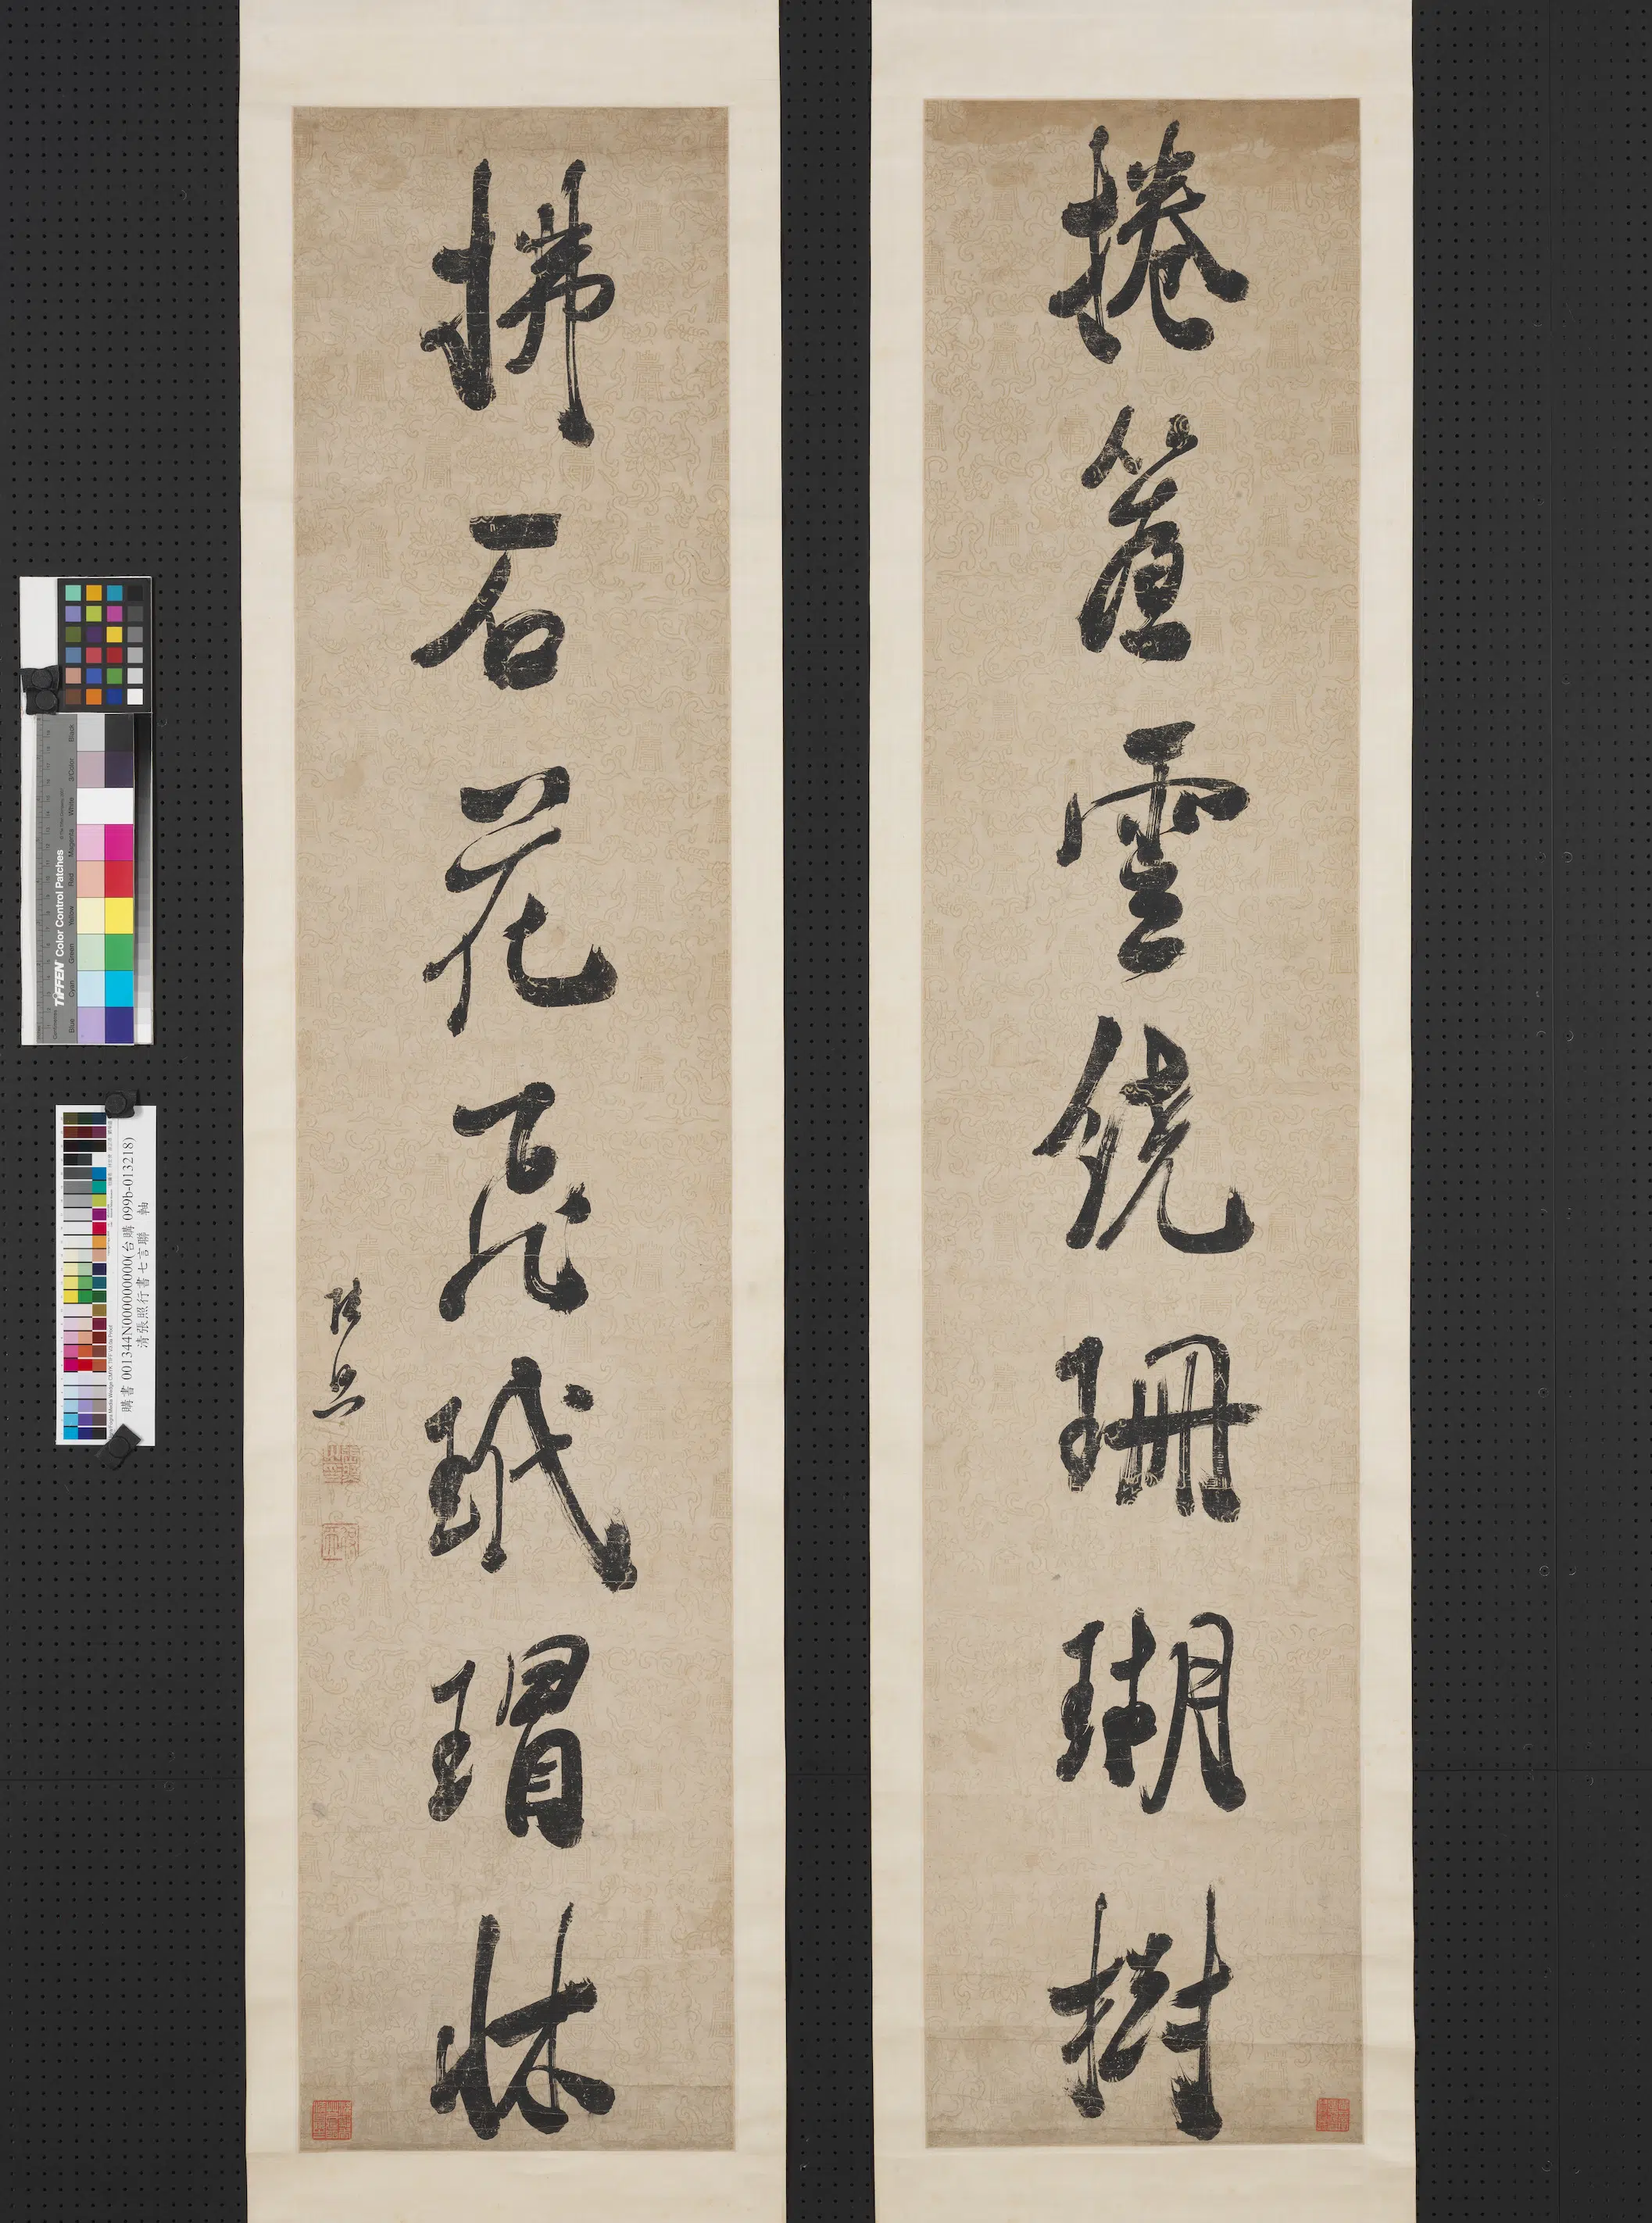 捲簾雲繞珊瑚樹
拂石花飛玳瑁牀
張照
TIFFEN Color Control Patches
Blue Cyan Green Yellow Red Magenta White 3/Color Black
購書 001344N000000000(台購 099b-013218)
清張照行書七言聯 軸